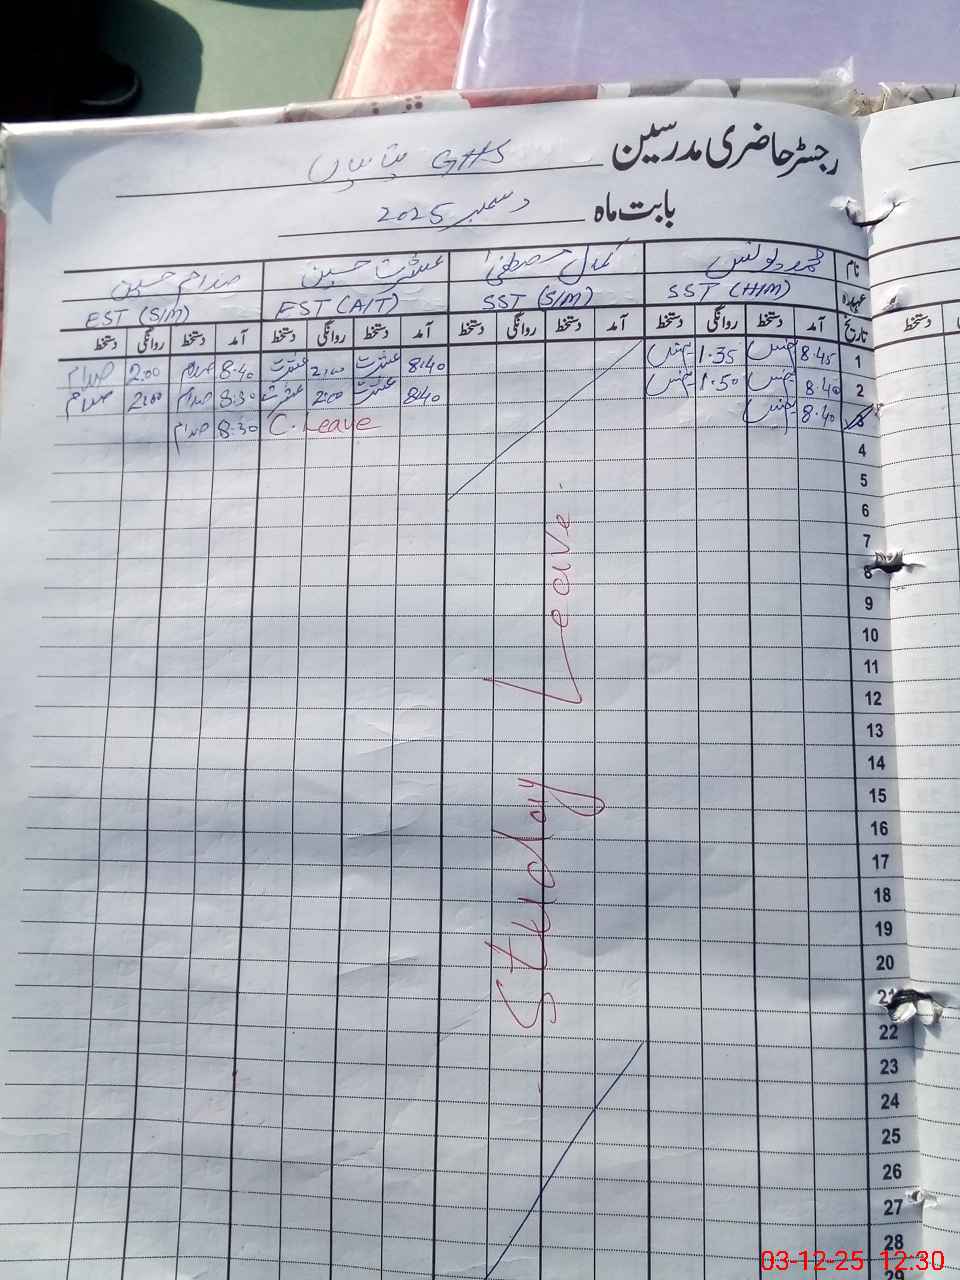 رجسٹر حاضری مدرسین GHS
بابت ماہ دسمبر 2025
نام محمد یونس کمال مصطفیٰ عشرت حسین صدام حسین
عہدہ SST (H/M) SST (S/M) EST (A/T) EST (S/M)
تاریخ آمد دستخط روانگی دستخط آمد دستخط روانگی دستخط آمد دستخط روانگی دستخط آمد دستخط روانگی دستخط
دستخط
1 8.45 یونس 1.35 یونس 8.40 عشرت 2.00 عشرت 8.40 صدام 2.00 صدام
2 8.40 یونس 1.50 یونس 8.40 عشرت 2.00 عشرت 8.30 صدام 2.00 صدام
3 8.40 یونس C. Leave 8.30 صدام
4
5
6
7
8
9
10
11
12
13
14
15
16
17
18
19
20
21
22
23
24
25
26
27
28
29
Study Leave.
03-12-25 12:30